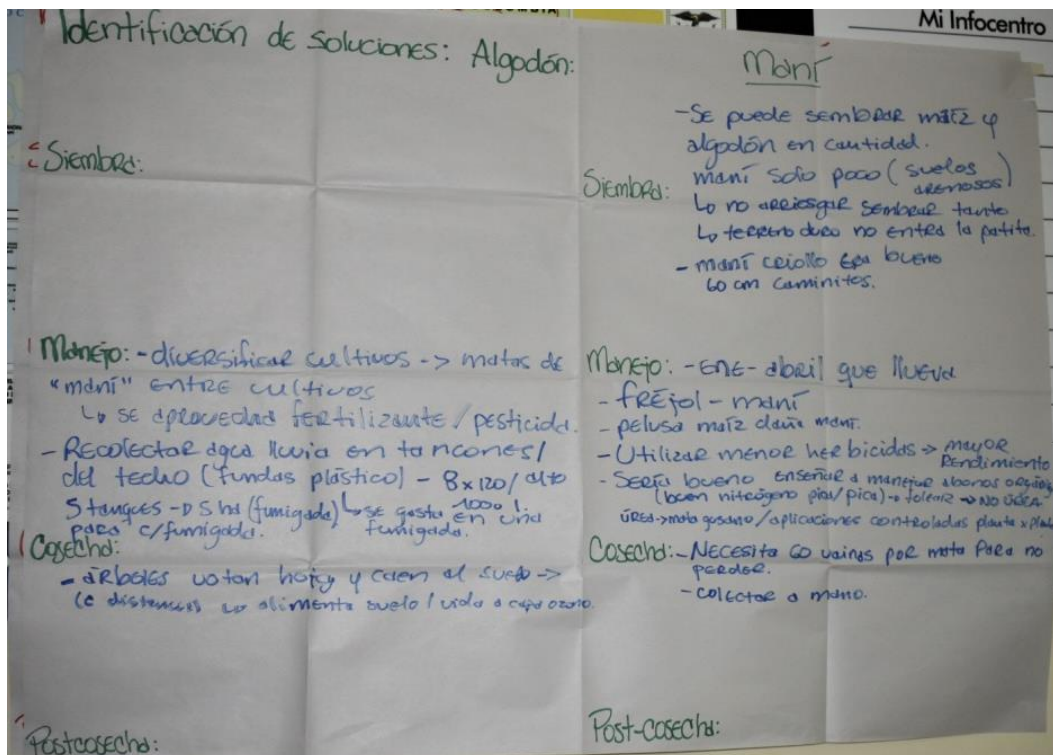 Mi Infocentro
Identificación de soluciones: Algodón:
Siembra:
Manejo: - diversificar cultivos -> matas de
"maní" entre cultivos
↳ se aprovecha fertilizante / pesticida.
- Recolectar agua lluvia en tancones/
del techo (fundas plástico) - 8x120/ alto
5 tanques -> 5 ha (fumigada) ↳ se gasta 1000 l. en una
para c/fumigada. fumigada.
Cosecha:
- árboles votan hoja y caen al suelo ->
↳ alimenta suelo / vida a capa ozono.
Postcosecha:
Maní
- Se puede sembrar maíz y
algodón en cantidad.
Siembra: maní solo poco (suelos
arenosos)
↳ no arriesgar sembrar tanto
↳ terreno duro no entra la patita.
- maní criollo era bueno
60 cm caminitos.
Manejo: - Ene - abril que llueva
- fréjol - maní
- pelusa maíz daña maní.
- Utilizar menor herbicidas -> mayor
Rendimiento
- Sería bueno enseñar a manejar abonos
(buen nitrógeno / pica) -> foliar -> NO ÚREA
úrea -> mata gusano / aplicaciones controladas planta x
Cosecha: - Necesita 60 vainas por mata para no
perder.
- colectar a mano.
Post-cosecha: